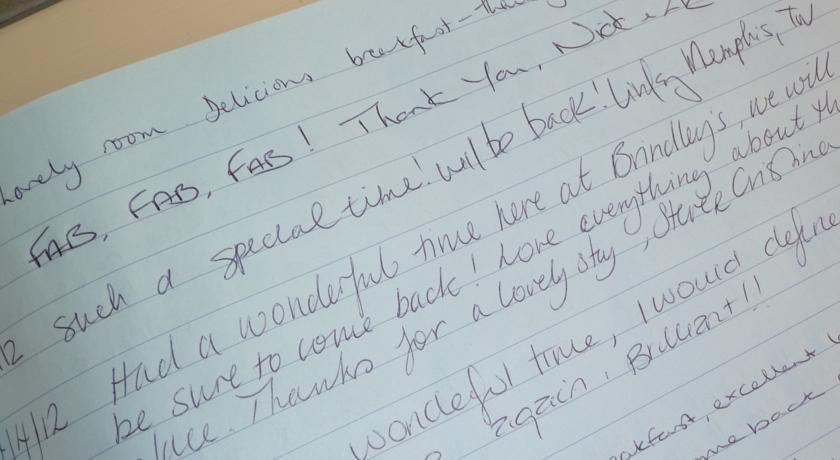 Lovely room Delicious breakfast -
FAB, FAB, FAB! Thank You, Nick
Such a special time! will be back! Memphis, TN
Had a wonderful time here at Brindley's, we will
be sure to come back! Love everything about
Thanks for a lovely stay, Steve
wonderful time, I would
again. Brilliant!!
excellent
back